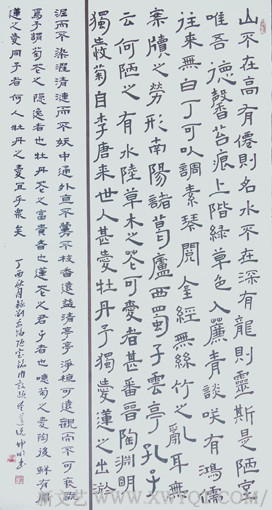 山不在高有僊則名水不在深有龍則靈斯是陋室
唯吾德馨苔痕上階綠草色入簾青談笑有鴻儒
往來無白丁可以調素琴閱金經無絲竹之亂耳無
案牘之勞形南陽諸葛廬西蜀子雲亭孔子
云何陋之有水陸草木之花可愛者甚蕃晉陶淵明
獨愛菊自李唐來世人甚愛牡丹予獨愛蓮之出淤
泥而不染濯清漣而不妖中通外直不蔓不枝香遠益清亭亭淨植可遠觀而不可褻玩
焉予謂菊花之隱逸者也牡丹花之富貴者也蓮花之君子者也噫菊之愛陶後鮮有聞
蓮之愛同予者何人牡丹之愛宜乎衆矣
丁酉秋月錄劉禹錫陋室銘周敦頤愛蓮說